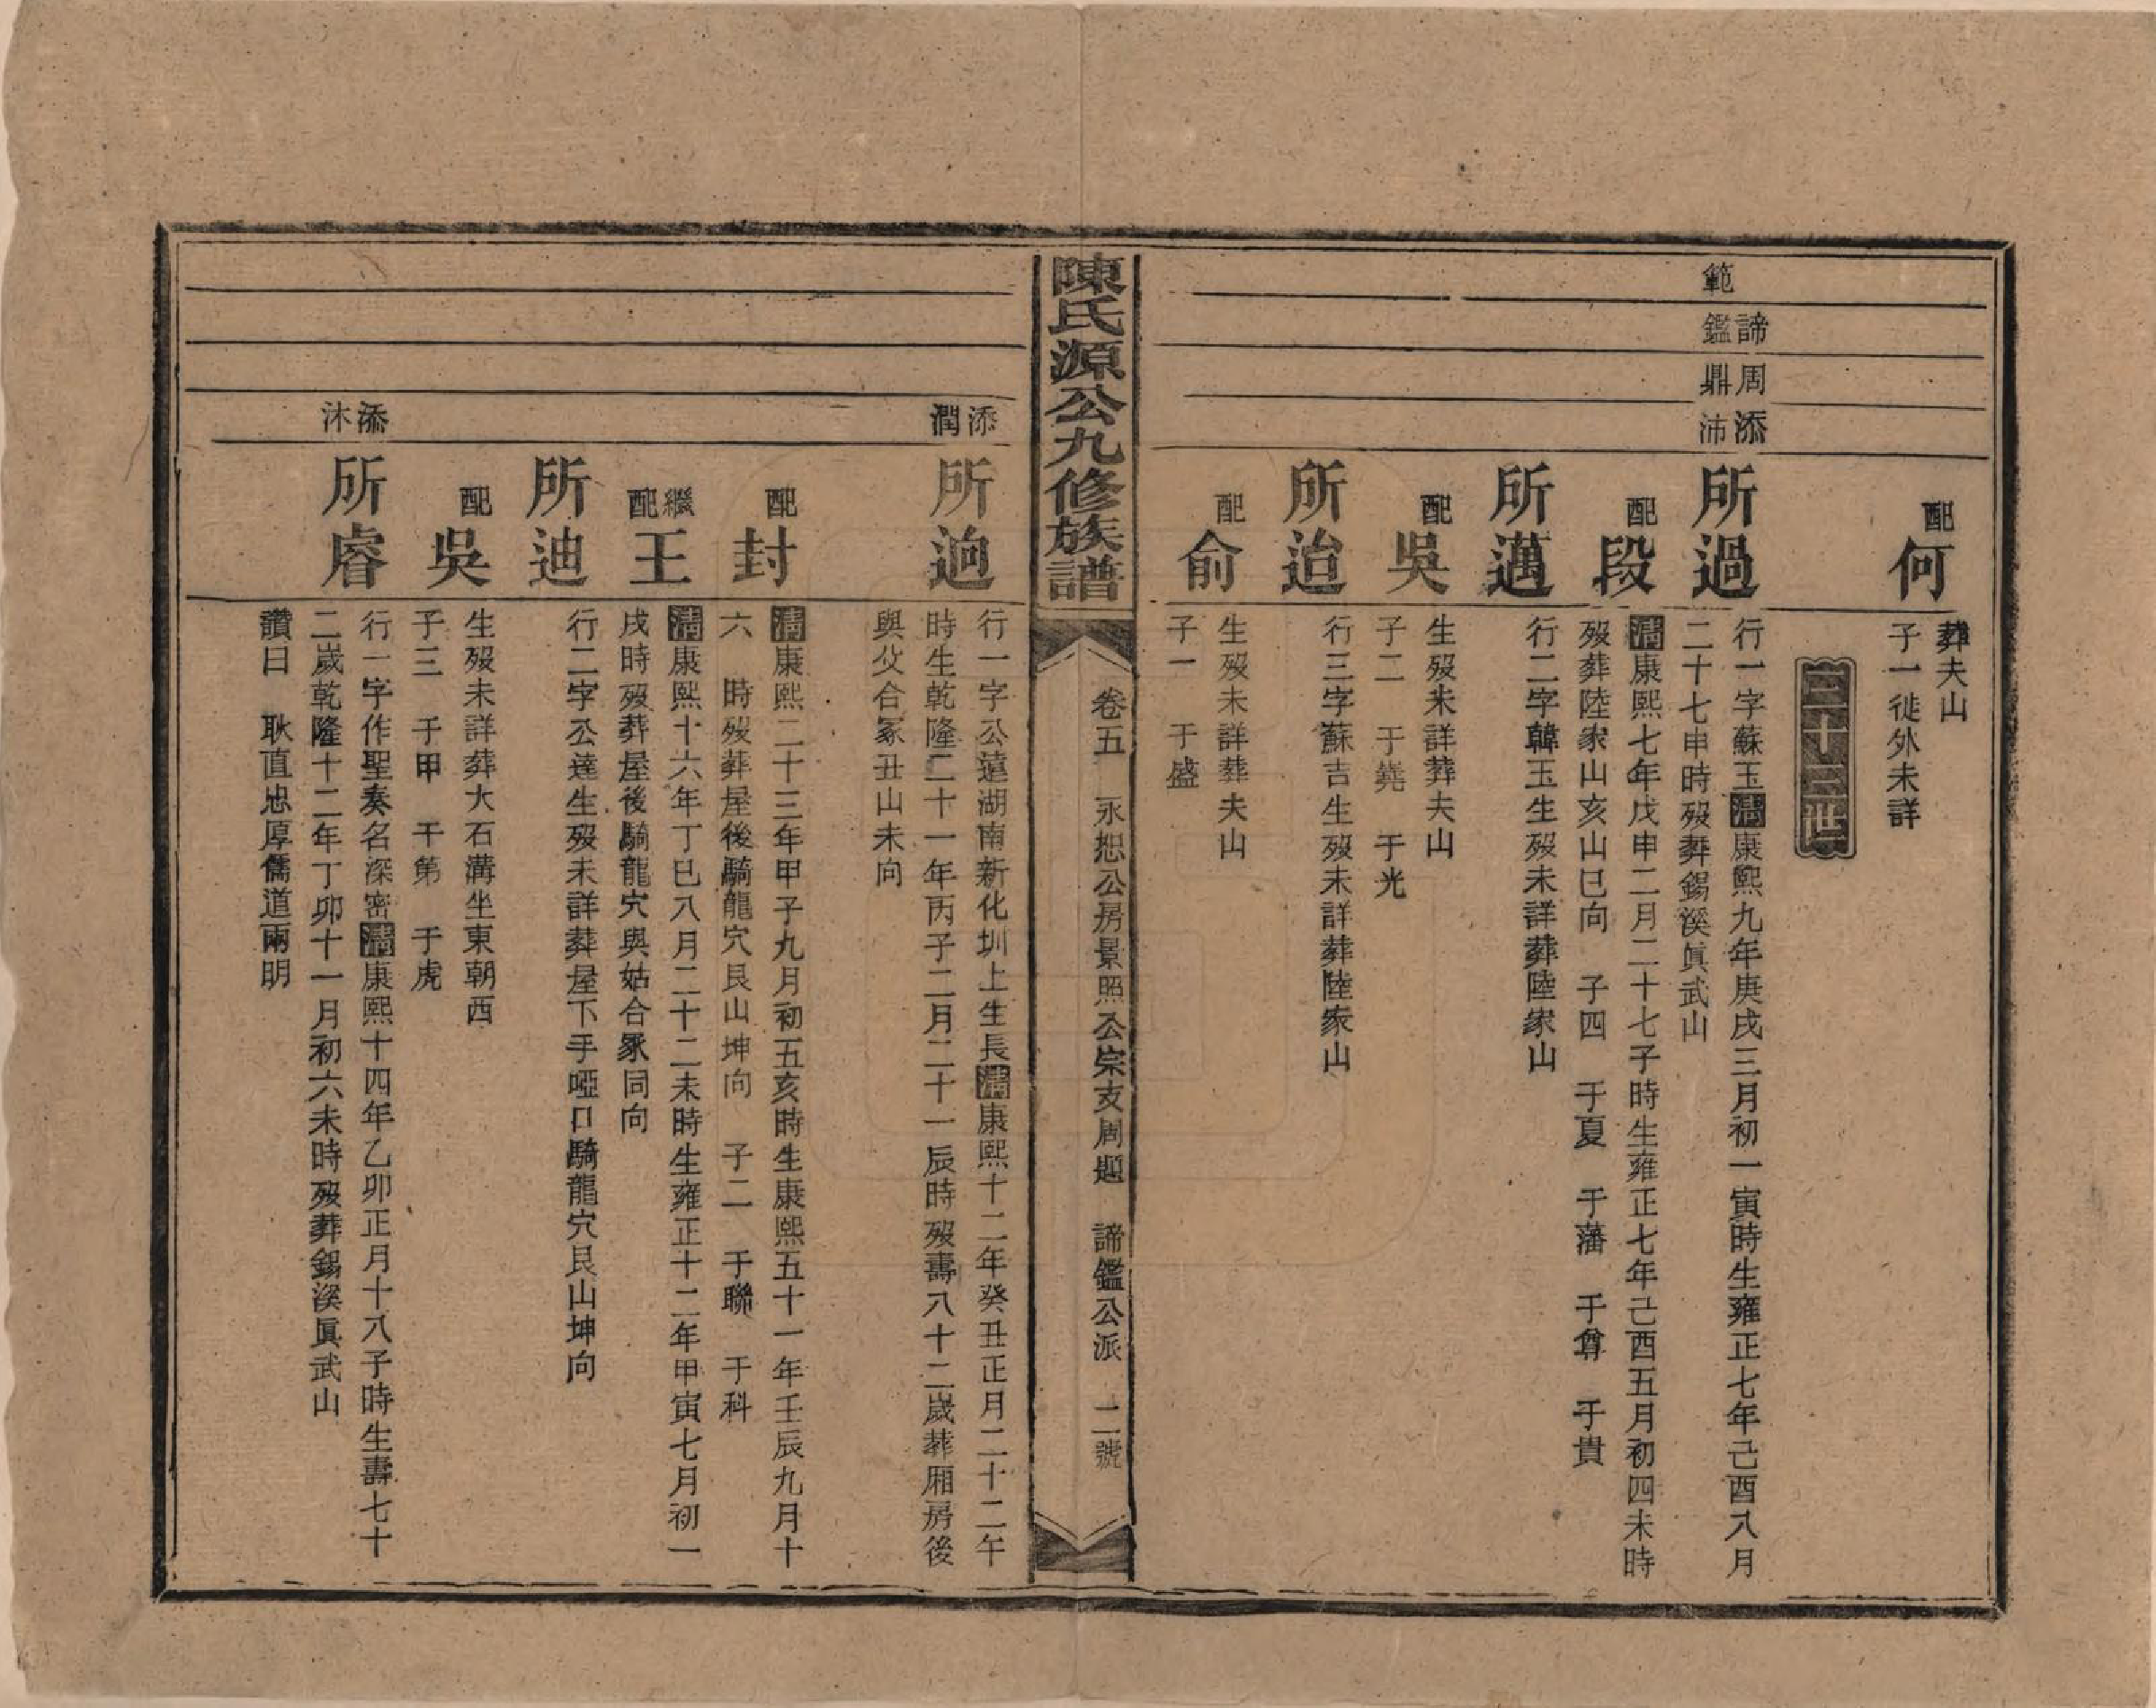 配何
葬夫山
子一徙外未詳
三十三世
範
諦鑑
周鼎
添沛
所過
行一字蘇玉清康熙九年庚戌三月初一寅時生雍正七年己酉八月
二十七申時歿葬錫溪眞武山
配段
清康熙七年戊申二月二十七子時生雍正七年己酉五月初四未時
歿葬陸家山亥山巳向　子四　于夏　于藩　于尊　于貴
所邁
行二字韓玉生歿未詳葬陸家山
配吳
生歿未詳葬夫山
子二　于堯　于光
所迨
行三字蘇吉生歿未詳葬陸家山
配俞
生歿未詳葬夫山
子一　于盛
陳氏源公九修族譜
卷五　永恕公房景照公宗支周題　諦鑑公派　二號
添潤
所逈
行一字公遠湖南新化圳上生長清康熙十二年癸丑正月二十二午
時生乾隆二十一年丙子二月二十一辰時歿壽八十二歲葬厢房後
與父合冢丑山未向
配封
清康熙二十三年甲子九月初五亥時生康熙五十一年壬辰九月十
六　時歿葬屋後騎龍穴艮山坤向　子二　于聯　于科
繼配王
清康熙十六年丁巳八月二十二未時生雍正十二年甲寅七月初一
戌時歿葬屋後騎龍穴與姑合冢同向
所迪
行二字公達生歿未詳葬屋下手啞口騎龍穴艮山坤向
配吳
生歿未詳葬大石溝坐東朝西
子三　于甲　于第　于虎
添沐
所睿
行一字作聖奏名深密清康熙十四年乙卯正月十八子時生壽七十
二歲乾隆十二年丁卯十一月初六未時歿葬錫溪眞武山
讚曰　耿直忠厚儒道兩明